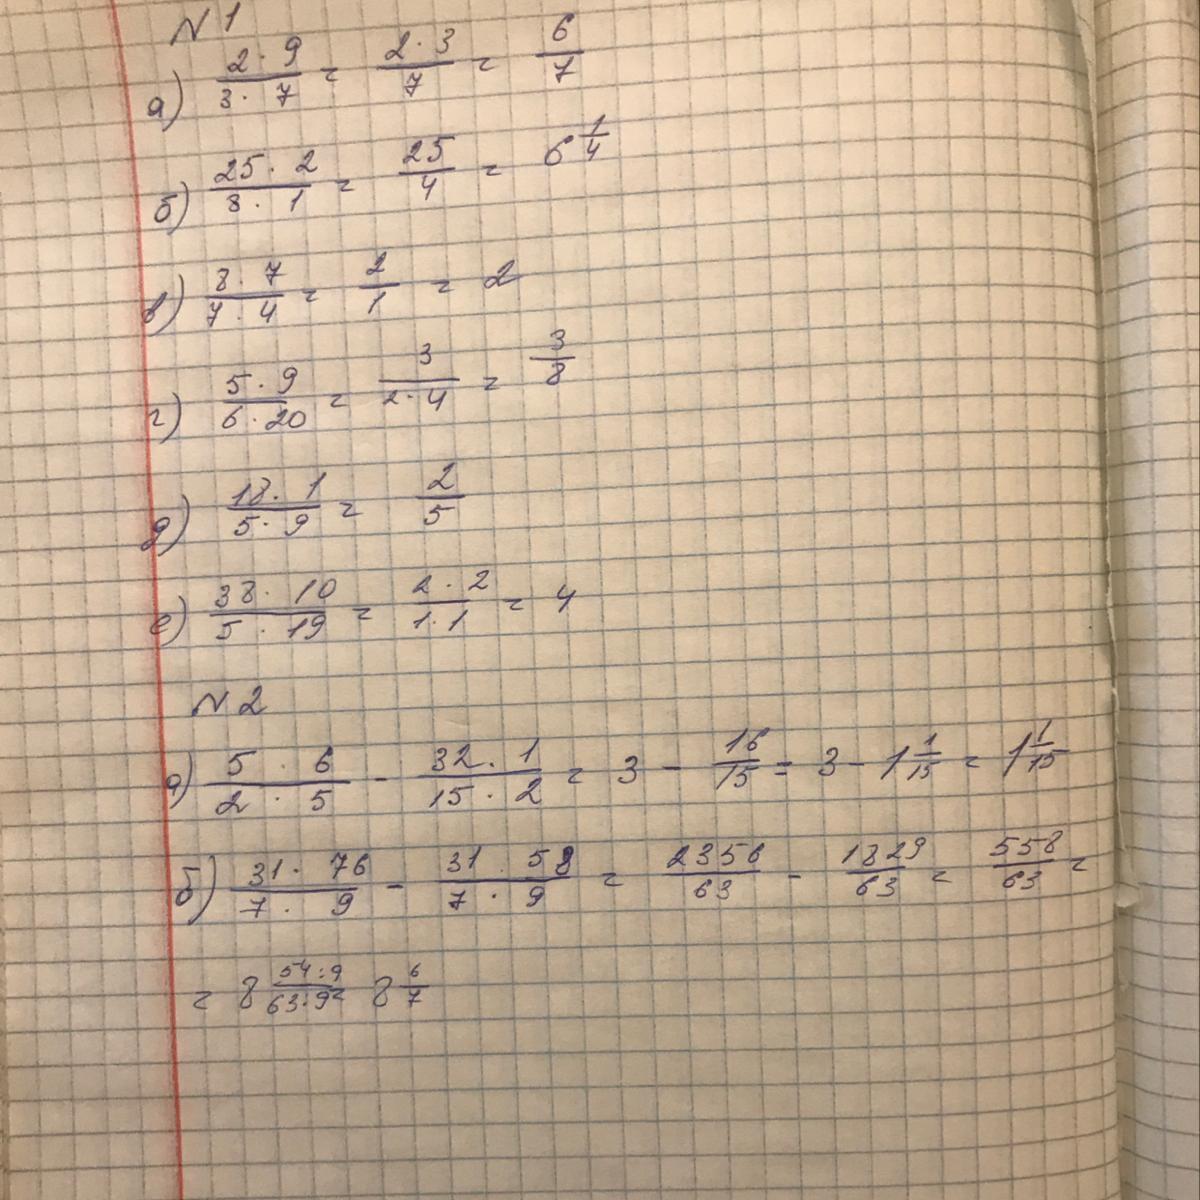 N 1
а) (2 · 9)/(3 · 7) = (2 · 3)/7 = 6/7
б) (25 · 2)/(8 · 1) = 25/4 = 6 1/4
в) (8 · 7)/(7 · 4) = 2/1 = 2
г) (5 · 9)/(6 · 20) = 3/(2 · 4) = 3/8
д) (18 · 1)/(5 · 9) = 2/5
е) (38 · 10)/(5 · 19) = (2 · 2)/(1 · 1) = 4
N 2
а) (5 · 6)/(2 · 5) - (32 · 1)/(15 · 2) = 3 - 16/15 = 3 - 1 1/15 = 1 1/15
б) (31 · 76)/(7 · 9) - (31 · 58)/(7 · 9) = 2356/63 - 1829/63 = 558/63 =
= 8 (54:9)/(63:9) = 8 6/7